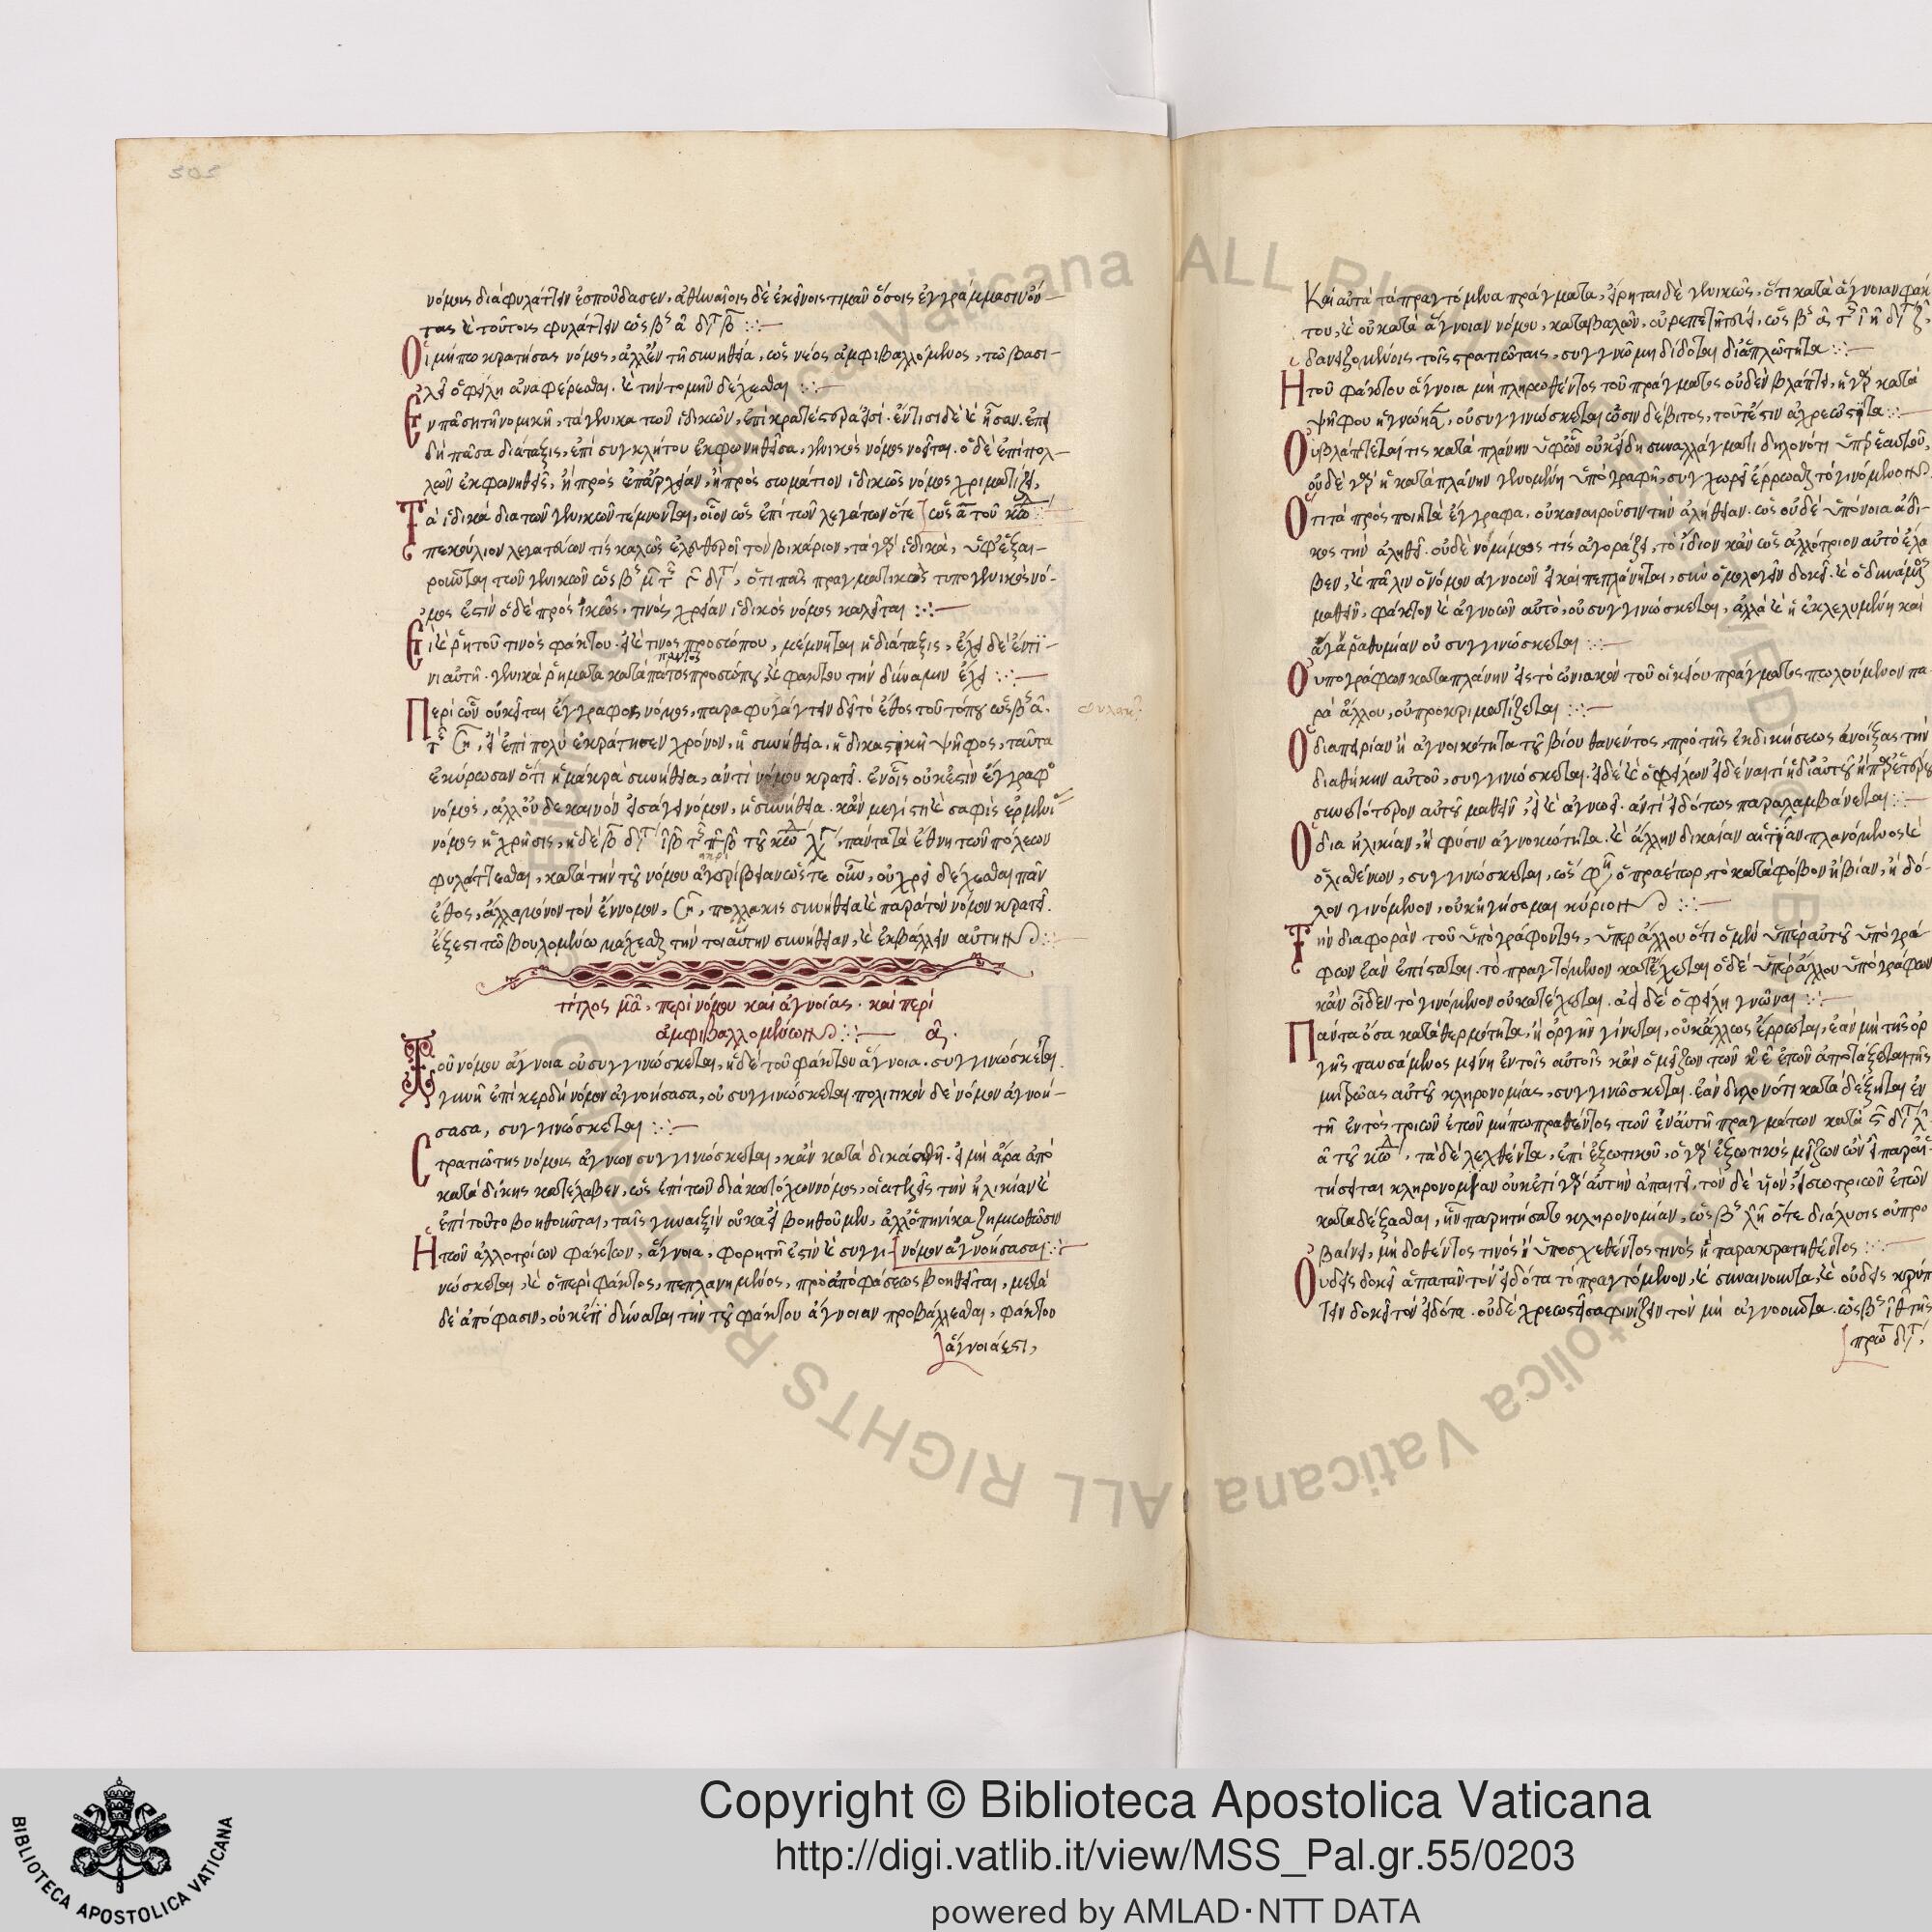 νόμοις διαφυλάττειν ἐσπούδασεν, ἀθηναίοις δὲ ἐκείνοις τιμᾶν ὅσοις ἐγγράμμασιν ὄν
τας καὶ τούτοις φυλάττειν
Οἱ μήπω κρατήσας νόμος, ἀλλ' ἐν τῇ συνηθεία, ὡς νέος ἀμφιβαλλόμενος, τῶ βασι
λεῖ ὀφείλη ἀναφέρεσθαι. καὶ τὴν τομὴν δέχεσθαι
Ἐν πάση τῆ νομικῆ, τὰ γενικὰ τῶν ἰδικῶν, ἐπικρατέστερα εἰσί. ἔν τισι δὲ καὶ ἦσαν. ἐπει
δὴ πᾶσα διάταξις, ἐπὶ συγκλήτου ἐκφωνηθεῖσα, γενικὸς νόμος νοεῖται. ὁ δὲ ἐπὶ πολ
λῶν ἐκφωνηθεὶς, ἢ πρὸς ἐπάρχειαν, ἢ πρὸς σωμάτιον ἰδικῶς νόμος χριματίζει,
Τὰ ἰδικὰ διὰ τῶν γενικῶν τέμνονται, οἷον ὡς ἐπὶ τῶν λεγάτων ὅτε
πεκούλιον λεγατεύων τίς καλῶς ἐλευθεροῖ τὸν βικάριον, τὰ γὰρ ἰδικὰ, ὑφεξαι
ροῦνται τῶν γενικῶν ὅτι πᾶς πραγματικὸς τύπος γενικὸς νό
μος ἐστὶν ὁ δὲ πρὸς τινὸς χρείαν ἰδικὸς νόμος καλεῖται
Εἰ καὶ ῥητοῦ τινὸς φάκτου. εἰ καὶ τινος προσώπου, μέμνηται ἡ διάταξις, ἔχει δὲ ἔν τι
νι αὐτῆ. γενικὰ ῥήματα κατὰ παντὸς προσώπου, καὶ φάκτου τὴν δύναμιν ἔχει
Περὶ ὧν οὐ κεῖται ἔγγραφος νόμος, παραφυλάττειν δεῖ τὸ ἔθος τοῦ τόπου
εἰ ἐπὶ πολὺ ἐκράτησεν χρόνον, ἡ συνήθεια, ἡ δικαστικὴ ψῆφος, ταῦτα
ἐκύρωσαν ὅτι ἡ μακρὰ συνήθεια, ἀντὶ νόμου κρατεῖ. ἐν οἷς οὐκ ἐστὶν ἔγγραφος
νόμος, ἀλλ' οὐδὲ καινὸν εἰσάγει νόμον, ἡ συνήθεια. κἂν μεγίστη καὶ σαφὶς ἑρμηνεία
νόμος ἡ χρῆσις, πάντα τὰ ἔθνη τῶν πόλεων
φυλάττεσθαι, κατὰ τὴν τοῦ νόμου ἀκρίβειαν ὥστε οὖν, οὐ χρὴ δέχεσθαι πᾶν
ἔθος, ἀλλὰ μόνον τὸν ἔννομον, πολλάκις συνήθεια καὶ παρὰ τὸν νόμον κρατεῖ.
ἔξεστι τῶ βουλομένω μάχεσθαι τὴν τοιαύτην συνήθειαν, καὶ ἐκβάλλειν αὐτήν
τίτλος μα, περὶ νόμου καὶ ἀγνοίας. καὶ περὶ
ἀμφιβαλλομένων
Τοῦ νόμου ἄγνοια οὐ συγγινώσκεται, ἡ δὲ τοῦ φάκτου ἄγνοια. συγγινώσκεται
γυνὴ ἐπὶ κερδὴ νόμον ἀγνοήσασα, οὐ συγγινώσκεται. πολιτικὸν δὲ νόμον ἀγνοή
σασα, συγγινώσκεται
Στρατιώτης νόμοις ἀγνῶν συγγινώσκεται, κἂν κατὰ δικάσθη. εἰ μὴ ἄρα ἀπὸ
καταδίκης κατέλαβεν, ὡς ἐπὶ τῶν διακατόχων νόμος, τὴν ἡλικίαν καὶ
ἐπὶ τοῦτο βοηθοῦνται, ταῖς γυναιξὶν οὐκ ἀεὶ βοηθοῦμεν, ἀλλ' ὁπηνίκα ζημιωθῶσιν
Ἡ τῶν ἀλλοτρίων φάκτων, ἄγνοια, φορητὴ ἐστὶν καὶ συγγι νόμον ἀγνοήσασαι
νώσκεται, καὶ ὁ περὶ φάκτος, πεπλανημένος, πρὸ ἀποφάσεως βοηθεῖται, μετὰ
δὲ ἀπόφασιν, οὐκ ἔτι δύναται τὴν τοῦ φάκτου ἄγνοιαν προβάλλεσθαι, φάκτου
ἄγνοιά ἐστι,
Καὶ αὐτὰ τὰ πραττόμενα πράγματα, εἴρηται δὲ γενικῶς, ὅτι κατὰ ἄγνοιαν φάκ
του, καὶ οὐ κατὰ ἄγνοιαν νόμου, καταβαλὼν, οὐ ρεπετητεύει,
δανειζομένοις τοῖς στρατιώταις, συγγνώμη δίδοται δι' ἁπλότητα
Ἡ τοῦ φάκτου ἄγνοια μὴ πληρωθέντος τοῦ πράγματος οὐδὲν βλάπτει, ἡ γὰρ κατὰ
ψήφου οὐ συγγινώσκεται ὦσιν δέβιτος, τουτέστιν
Οὐ βλάπτεταί τις κατὰ πλάνην ὑφ' ὧν οὐκ εἴδη συναλλάγματι δηλονότι ὑπὲρ ἑαυτοῦ,
οὐδὲ γὰρ ἡ κατὰ πλάνην γενομένη ὑπογραφῆ, συγχωρεῖ ἐρρῶσθαι τὸ γινόμενον
Ὅτι τὰ πρὸς ποιητὰ ἔγγραφα. οὐκ ἀναιροῦσιν τὴν ἀλήθειαν. ὡς οὐδὲ ὑπόνοια ἄδι
κος τὴν ἀληθεῖ. οὐδὲ νομίμως τίς ἀγοράζει, τὸ ἴδιον κἂν ὡς ἀλλότριον αὐτὸ ἔλα
βεν, καὶ πάλιν ὁ νόμον ἀγνοῶν εἰ καὶ πεπλάνηται, συνομολογεῖν δοκεῖ. καὶ ὁ δυνάμενος
μαθεῖν, φάκτον καὶ ἀγνοῶν αὐτὸ, οὐ συγγινώσκεται, ἀλλὰ καὶ ἡ ἐκλελυμένη καὶ
ἄγα ῥαθυμίαν οὐ συγγινώσκεται
Ὁ ὑπογράφων κατὰ πλάνην εἰς τὸ ὠνιακὸν τοῦ οἰκείου πράγματος πωλούμενον πα
ρὰ ἄλλου, οὐ προκριματίζεται
Ὁ δι' ἀπειρίαν ἢ ἀγνοικότητα τοῦ βίου θανέντος, πρὸ τῆς ἐκδικήσεως ἀνοίξας τὴν
διαθήκην αὐτοῦ, συγγινώσκεται.
συνετότερον αὐτοῦ μαθεῖν, εἰ καὶ ἀγνοεῖ. ἀντὶ εἰδότος παραλαμβάνεται
Ὁ δια ἡλικίαν, ἢ φύσιν ἀγνοικότητα. καὶ ἄλλην δικαίαν αἰτίαν πλανόμενος καὶ
ὀλισθένων, συγγινώσκεται, ὁ πραέτορ, τὸ κατὰ φόβον ἢ βίαν, ἢ δό
λον γινόμενον, οὐκ ἡγήσομαι κύριον
Τὴν διαφορὰν τοῦ ὑπογράφοντος, ὑπὲρ ἄλλου ὅτι ὁ μὲν ὑπὲρ αὐτοῦ ὑπογρά
φων ἐὰν ἐπίσταται. τὸ πραττόμενον κατέχεται ὁ δὲ ὑπὲρ ἄλλου ὑπογράφων
κἂν οἶδεν τὸ γινόμενον οὐ κατέχεται. ἀεὶ δὲ ὀφείλη γνῶναι
Πάντα ὅσα κατὰ θερμότητα, ἢ ὀργὴν γίνεται, οὐκ ἄλλως ἔρρωται, ἐὰν μὴ τῆς ὀρ
γῆς παυσάμενος μείνη ἐν τοῖς αὐτοῖς κἂν ὁ μείζων τῶν κε ἐτῶν ἀποτάξεται τῆς
μητρώας αὐτοῦ κληρονομίας, συγγινώσκεται. ἐὰν δηλονότι καταδέξηται ἐν
τῆ ἐντὸς τριῶν ἐτῶν μήπω πραθέντος τῶν ἐν αὐτῆ πραγμάτων κατὰ
τὰ δὲ λεχθέντα, ἐπὶ ἐξωτικοῦ, ὁ γὰρ ἐξωτικὸς μείζων ὢν εἰ παραι
τήσεται κληρονομίαν οὐκέτι γὰρ αὐτὴν ἀπαιτεῖ, τὸν δὲ υἱὸν, εἴσω τριῶν ἐτῶν
καταδέξασθαι, ἣν παρητήσατο κληρονομίαν, ὅτε διάλυσις οὐ προ
βαίνει, μὴ δοθέντος τινὸς ἢ ὑποσχεθέντος τινὸς ἢ παρακρατηθέντος
Οὐδεὶς δοκεῖ ἀπατᾶν τὸν εἰδότα τὸ πραττόμενον, καὶ συναινοῦντα, καὶ οὐδεὶς κρύπ
τειν δοκεῖ τὸν εἰδότα. οὐδὲ χρεωστεῖ σαφηνίζειν τὸν μὴ ἀγνοοῦντα.
Copyright © Biblioteca Apostolica Vaticana
http://digi.vatlib.it/view/MSS_Pal.gr.55/0203
powered by AMLAD·NTT DATA
BIBLIOTECA APOSTOLICA VATICANA